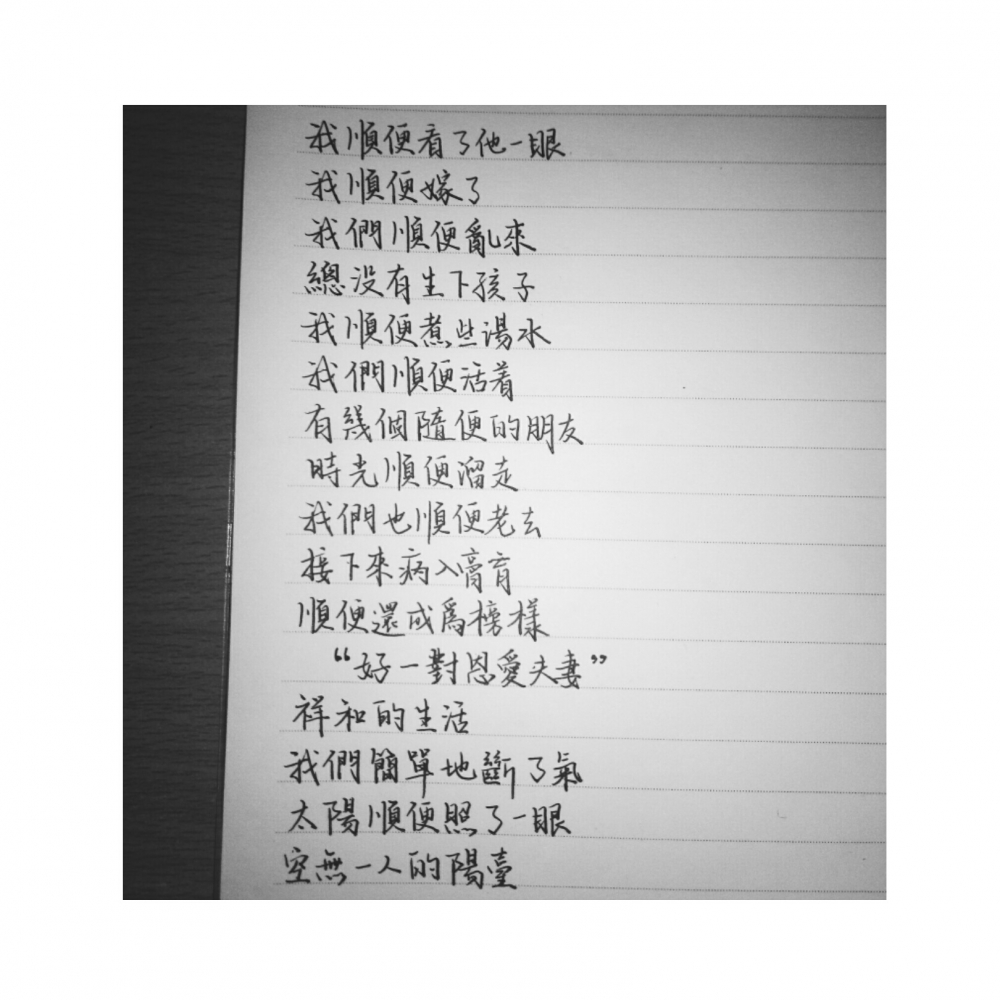 我順便看了他一眼
我順便嫁了
我們順便亂來
總没有生下孩子
我順便煮些湯水
我們順便活着
有幾個隨便的朋友
時光順便溜走
我們也順便老去
接下來病入膏肓
順便還成爲榜樣
“好一對恩愛夫妻”
祥和的生活
我們簡單地斷了氣
太陽順便照了一眼
空無一人的陽臺